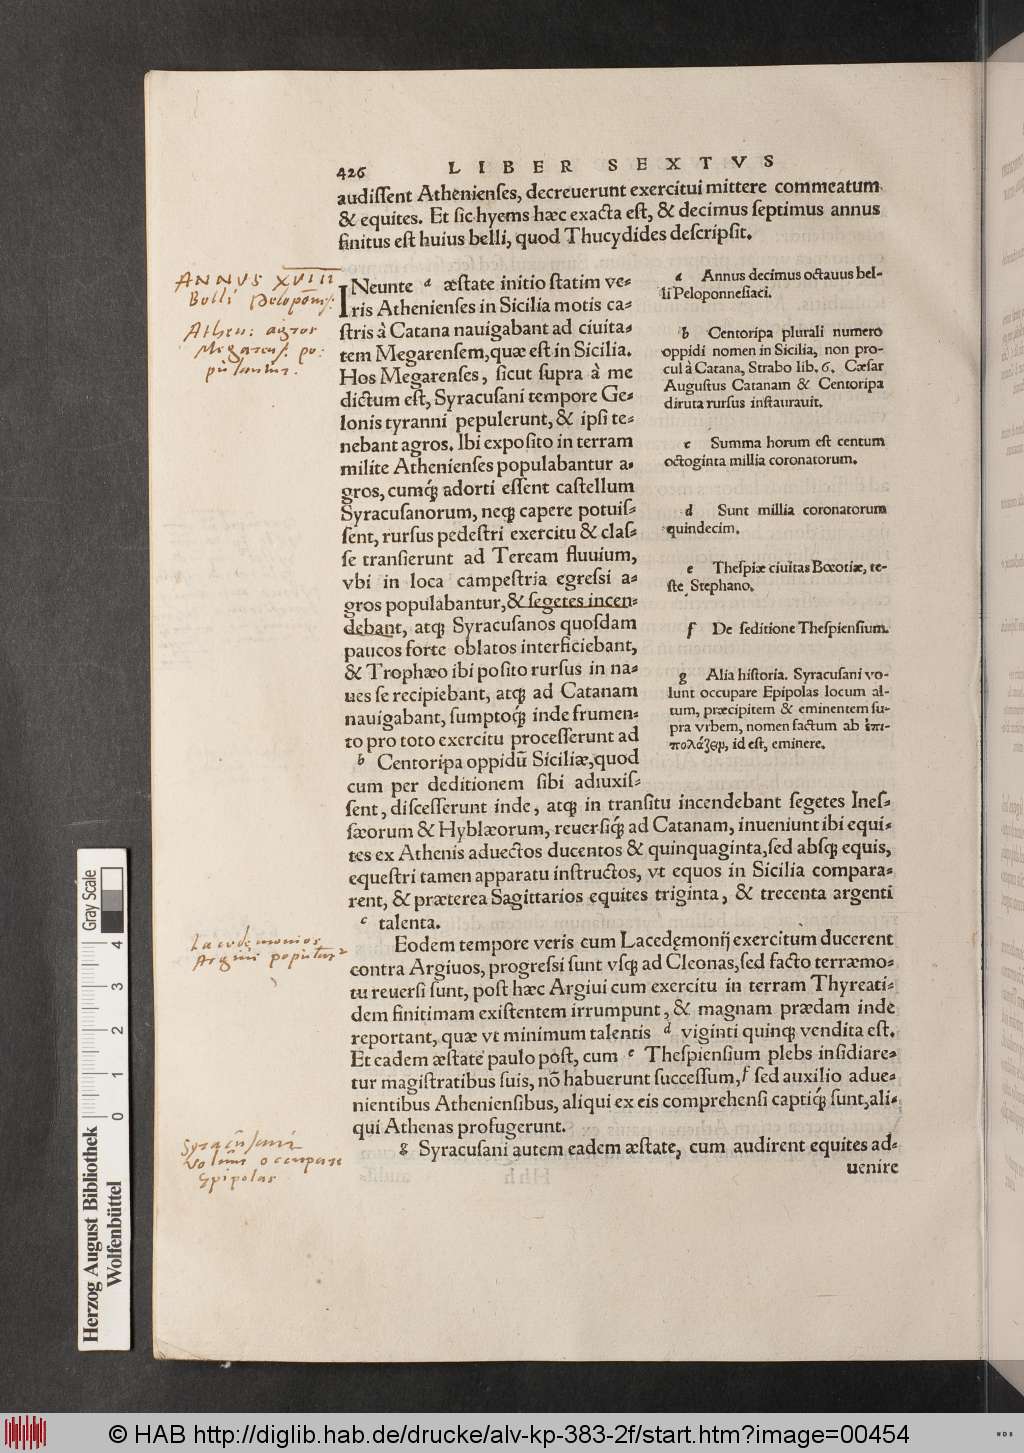 426 LIBER SEXTVS
audiſſent Athenienſes, decreuerunt exercitui mittere commeatum
& equites. Et ſic hyems hæc exacta eſt, & decimus ſeptimus annus
finitus eſt huius belli, quod Thucydides deſcripſit.
ANNVS XVIII
Belli Peloponeſ:
Athen: agros
Megarenſ. po:
pulantur.
INeunte a æſtate initio ſtatim ve-
ris Athenienſes in Sicilia motis ca-
ſtris à Catana nauigabant ad ciuita-
tem Megarenſem, quæ eſt in Sicilia.
Hos Megarenſes, ſicut ſupra à me
dictum eſt, Syracuſani tempore Ge-
lonis tyranni pepulerunt, & ipſi te-
nebant agros. Ibi expoſito in terram
milite Athenienſes populabantur a-
gros, cumq́ꝫ adorti eſſent caſtellum
Syracuſanorum, neqꝫ capere potuiſ-
ſent, rurſus pedeſtri exercitu & claſ-
ſe tranſierunt ad Teream fluuium,
vbi in loca campeſtria egreſſi a-
gros populabantur, & ſegetes incen-
debant, atqꝫ Syracuſanos quoſdam
paucos forte oblatos interficiebant,
& Trophæo ibi poſito rurſus in na-
ues ſe recipiebant, atqꝫ ad Catanam
nauigabant, ſumptoq́ꝫ inde frumen-
to pro toto exercitu proceſſerunt ad
b Centoripa oppidū Siciliæ, quod
cum per deditionem ſibi adiuxiſ-
a Annus decimus octauus bel-
li Peloponneſiaci.
b Centoripa plurali numero
oppidi nomen in Sicilia, non pro-
cul à Catana, Strabo lib. 6. Cæſar
Auguſtus Catanam & Centoripa
diruta rurſus inſtaurauit.
c Summa horum eſt centum
octoginta millia coronatorum.
d Sunt millia coronatorum
quindecim.
e Theſpiæ ciuitas Bœotiæ, te-
ſte Stephano.
f De ſeditione Theſpienſium.
g Alia hiſtoria. Syracuſani vo-
lunt occupare Epipolas locum al-
tum, præcipitem & eminentem ſu-
pra vrbem, nomen factum ab ἐπι-
πολάζειν, id eſt, eminere.
ſent, diſceſſerunt inde, atqꝫ in tranſitu incendebant ſegetes Ineſ-
ſæorum & Hyblæorum, reuerſiq́ꝫ ad Catanam, inueniunt ibi equi-
tes ex Athenis aduectos ducentos & quinquaginta, ſed abſqꝫ equis,
equeſtri tamen apparatu inſtructos, vt equos in Sicilia compara-
rent, & præterea Sagittarios equites triginta, & trecenta argenti
c talenta.
Lacedemonios
Argiui populantur
Eodem tempore veris cum Lacedęmonij exercitum ducerent
contra Argiuos, progreſſi ſunt vſqꝫ ad Cleonas, ſed facto terræmo-
tu reuerſi ſunt, poſt hæc Argiui cum exercitu in terram Thyreati-
dem finitimam exiſtentem irrumpunt, & magnam prædam inde
reportant, quæ vt minimum talentis d viginti quinqꝫ vendita eſt.
Et eadem æſtate paulo poſt, cum e Theſpienſium plebs inſidiare-
tur magiſtratibus ſuis, nō habuerunt ſucceſſum, f ſed auxilio adue-
nientibus Athenienſibus, aliqui ex eis comprehenſi captiq́ꝫ ſunt, ali-
qui Athenas profugerunt.
Syracuſani
volunt occupare
Epipolas
g Syracuſani autem eadem æſtate, cum audirent equites ad-
uenire
Gray Scale
0 1 2 3 4
Herzog August Bibliothek
Wolfenbüttel
© HAB http://diglib.hab.de/drucke/alv-kp-383-2f/start.htm?image=00454